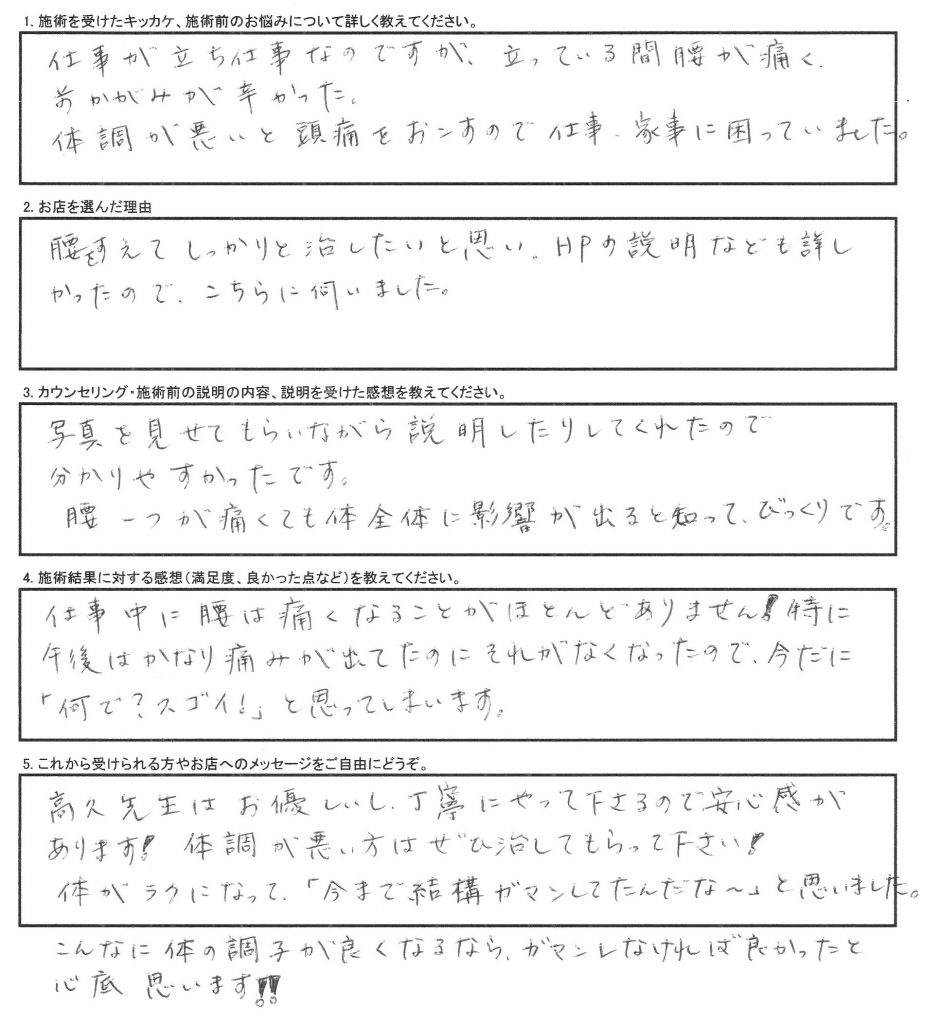 1. 施術を受けたキッカケ、施術前のお悩みについて詳しく教えてください。
仕事が立ち仕事なのですが、立っている間腰が痛く、
前かがみが辛かった。
体調が悪いと頭痛をおこすので仕事、家事に困っていました。
2. お店を選んだ理由
腰をすえてしっかりと治したいと思い、HPの説明なども詳し
かったので、こちらに伺いました。
3. カウンセリング・施術前の説明の内容、説明を受けた感想を教えてください。
写真を見せてもらいながら説明したりしてくれたので
分かりやすかったです。
腰一つが痛くても体全体に影響が出ると知って、びっくりです。
4. 施術結果に対する感想(満足度、良かった点など)を教えてください。
仕事中に腰は痛くなることがほとんどありません!特に
午後はかなり痛みが出てたのにそれがなくなったので、今だに
「何で?スゴイ!」と思ってしまいます。
5. これから受けられる方やお店へのメッセージをご自由にどうぞ。
高久先生はお優しいし、丁寧にやって下さるので安心感が
あります! 体調が悪い方はぜひ治してもらって下さい!
体がラクになって、「今まで結構ガマンしてたんだな〜」と思いました。
こんなに体の調子が良くなるなら、ガマンしなければ良かったと
心底思います!!